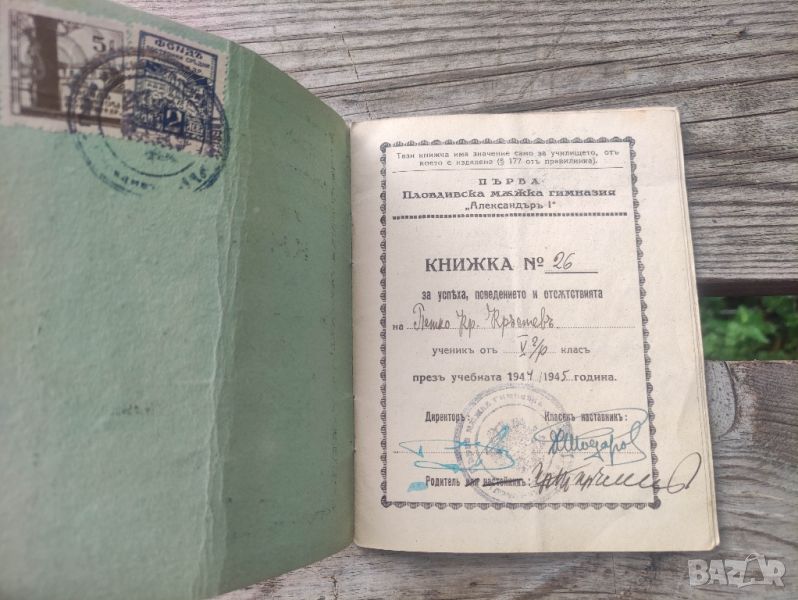 5
ФОНДЪ
2
Тази книжка има значение само за училището, отъ
което е издадена (§ 177 отъ правилника).
ПЪРВА
Пловдивска мѫжка гимназия
„Александъръ I“
КНИЖКА № 26
за успѣха, поведението и отсѫтствията
на Петко Кр. Кръстевъ
ученикъ отъ V г/р класъ
презъ учебната 1944/1945 година.
Директоръ: Класенъ наставникъ:
Родитель или настойникъ:
BAZAR